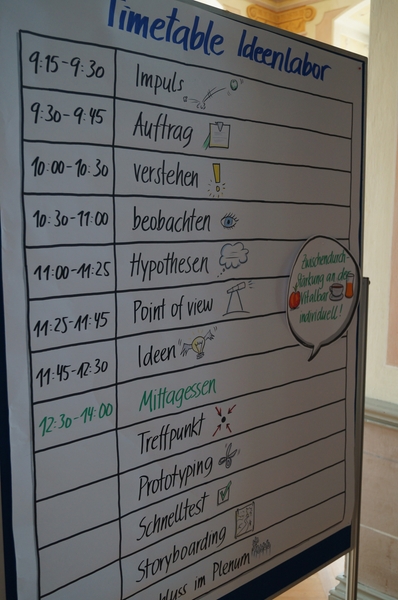 Timetable Ideenlabor
9:15-9:30 Impuls
9:30-9:45 Auftrag
10:00-10:30 verstehen
10:30-11:00 beobachten
11:00-11:25 Hypothesen
11:25-11:45 Point of view
11:45-12:30 Ideen
12:30-14:00 Mittagessen
Treffpunkt
Prototyping
Schnelltest
Storyboarding
im Plenum
Zwischendurch-
Stärkung an der
Vitalbar
individuell!